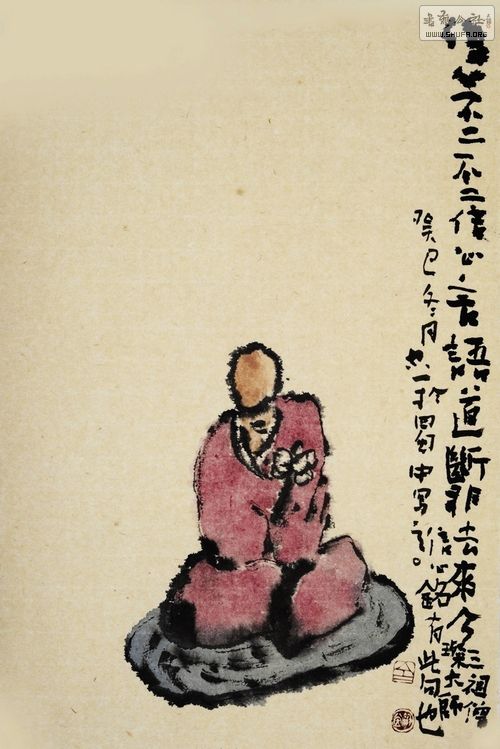 书法公社
WWW.SHUFA.ORG
信心不二不二信心言語道斷非去來今三祖僧
璨大師
信心銘有此句也
癸巳冬月一于中写之